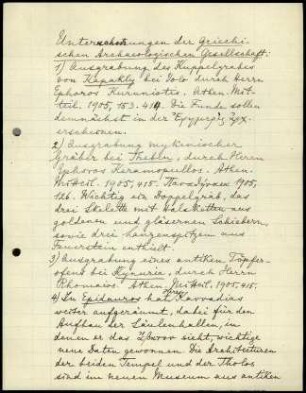 Untersuchungen der Griechi-
schen Archaeologischen Gesellschaft:
1) Ausgrabung des Kuppelgrabes
von Kapakly bei Volo durch Herrn
Ephoros Kuruniotis. Athen. Mit-
teil. 1905, 153. 414. Die Funde sollen
demnächst in der Ἐφημερὶς Ἀρχ.
erscheinen.
2) Ausgrabung mykenischer
Gräber bei Theben, durch Herrn
Ephoros Keramopullos. Athen.
Mitteil. 1905, 415.
126. Wichtig ein Doppelgrab, das
drei Skelette mit Halsketten aus
goldenen und gläsernen Schiebern
sowie drei Lanzenspitzen aus
Feuerstein enthielt.
3) Ausgrabung eines antiken Töpfer-
ofens bei Kynuria, durch Herrn
Rhomaios. Athen. Mitteil. 1905, 415.
4) In Epidauros hat Herr Kavvadias
weiter aufgeräumt, dabei für den
Aufbau der Säulenhallen, in
denen er das Ἄβατον sieht, wichtige
neue Daten gewonnen. Die Architekturen
der beiden Tempel und der Tholos
sind im neuen Museum aus antiken